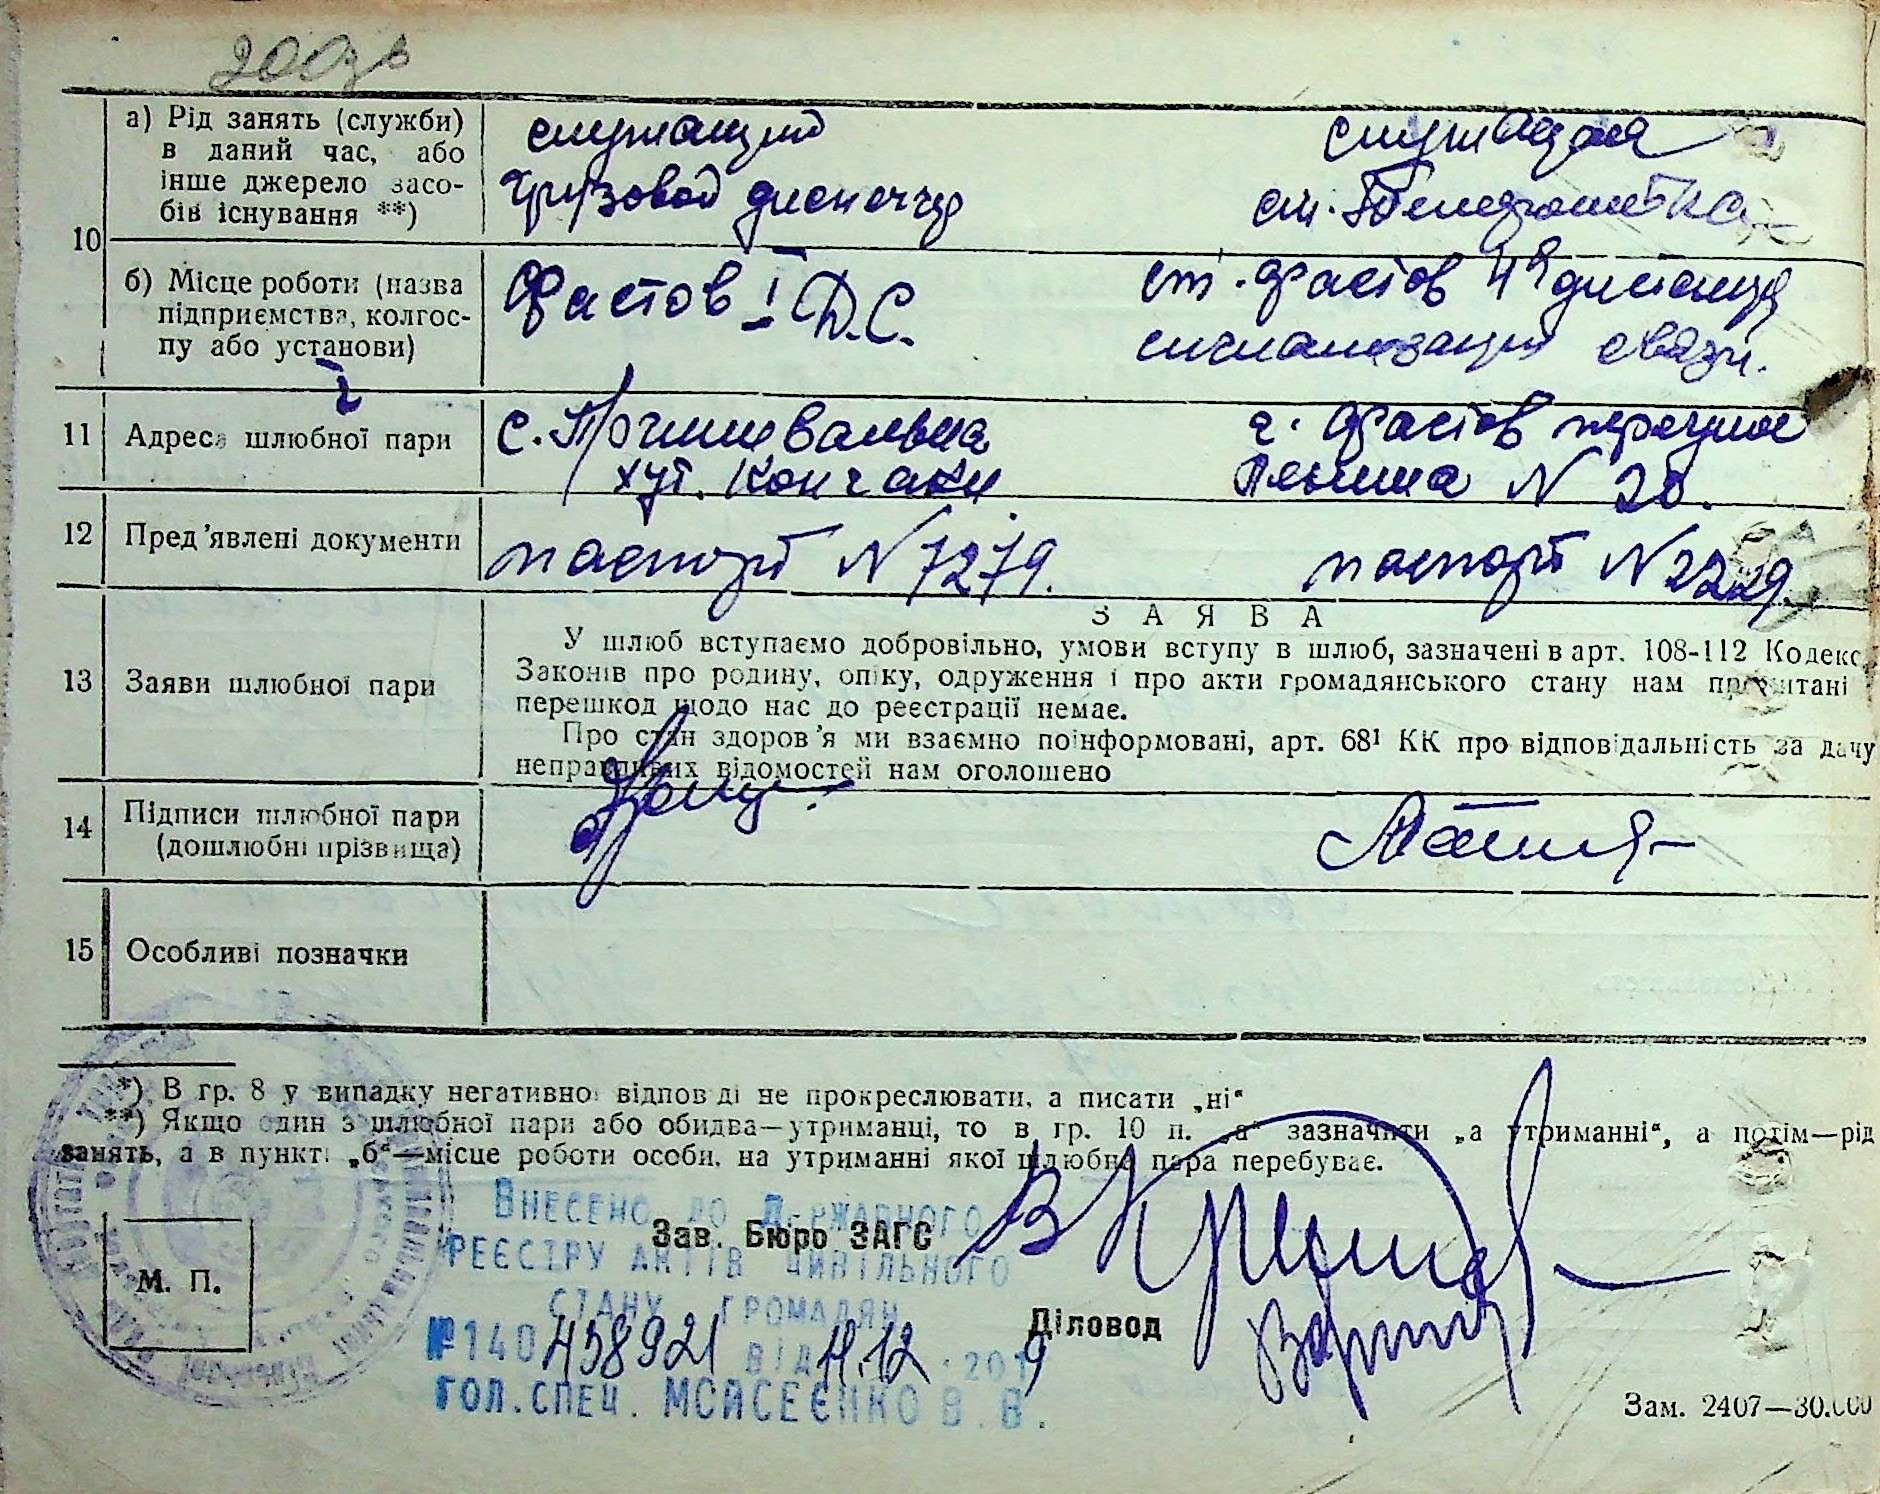 10
а) Рід занять (служби)
в даний час, або
інше джерело засо-
бів існування **)
служащий
грузовой диспетчер
служащая
ст. телеграфистка
б) Місце роботи (назва
підприємства, колгос-
пу або установи)
Фастов I Д.С.
ст. Фастов 4я дистанция
сигнализации связи.
11 Адреса шлюбної пари
с.
хут. Кончаки
г. Фастов переулок
Ленина N 20.
12 Пред'явлені документи
паспорт N 7279.
паспорт N 2229.
ЗАЯВА
13 Заяви шлюбної пари
У шлюб вступаємо добровільно, умови вступу в шлюб, зазначені в арт. 108-112 Кодекс
Законів про родину, опіку, одруження і про акти громадянського стану нам прочитані
перешкод щодо нас до реєстрації немає.
Про стан здоров'я ми взаємно поінформовані, арт. 68¹ КК про відповідальність за дачу
неправдивих відомостей нам оголошено
14 Підписи шлюбної пари
(дошлюбні прізвища)
15 Особливі позначки
*) В гр. 8 у випадку негативної відповіді не прокреслювати, а писати „ні“
**) Якщо один з шлюбної пари або обидва—утриманці, то в гр. 10 п. „а“ зазначити „а утриманні“, а потім—рід
занять, а в пункті „б“—місце роботи особи, на утриманні якої шлюбна пара перебуває.
М. П.
Зав. Бюро ЗАГС
Внесено до Державного
реєстру актів цивільного
стану громадян
№ 140 458921 від 11.12.2019
Гол.спец. Мойсеєнко В. В.
Діловод
Зам. 2407—30.000